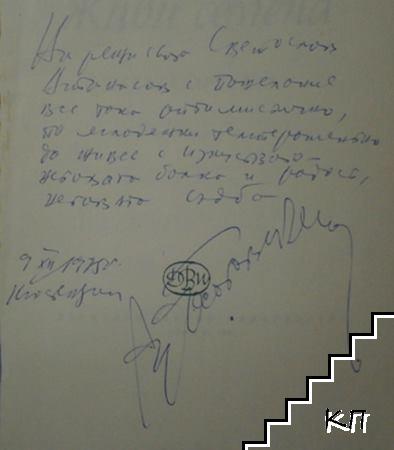 На режисьора Светослав
Атанасов с пожелание
все така оптимистично,
по младежки темпераментно
да живее с изкуството –
неговата болка и радост,
неговата съдба
9 XII 1975 г.
Кюстендил
КП